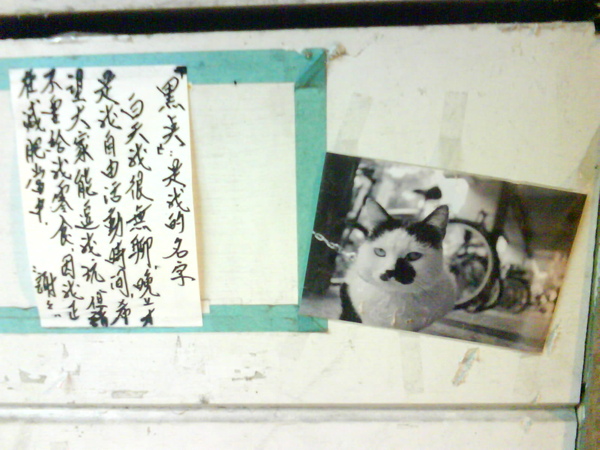 "黑奌":是我的名字
白天我很無聊,晚上才
是我自由活動時間,希
望大家能逗我玩,但請
不要給我零食,因我正
在減肥當中
謝々